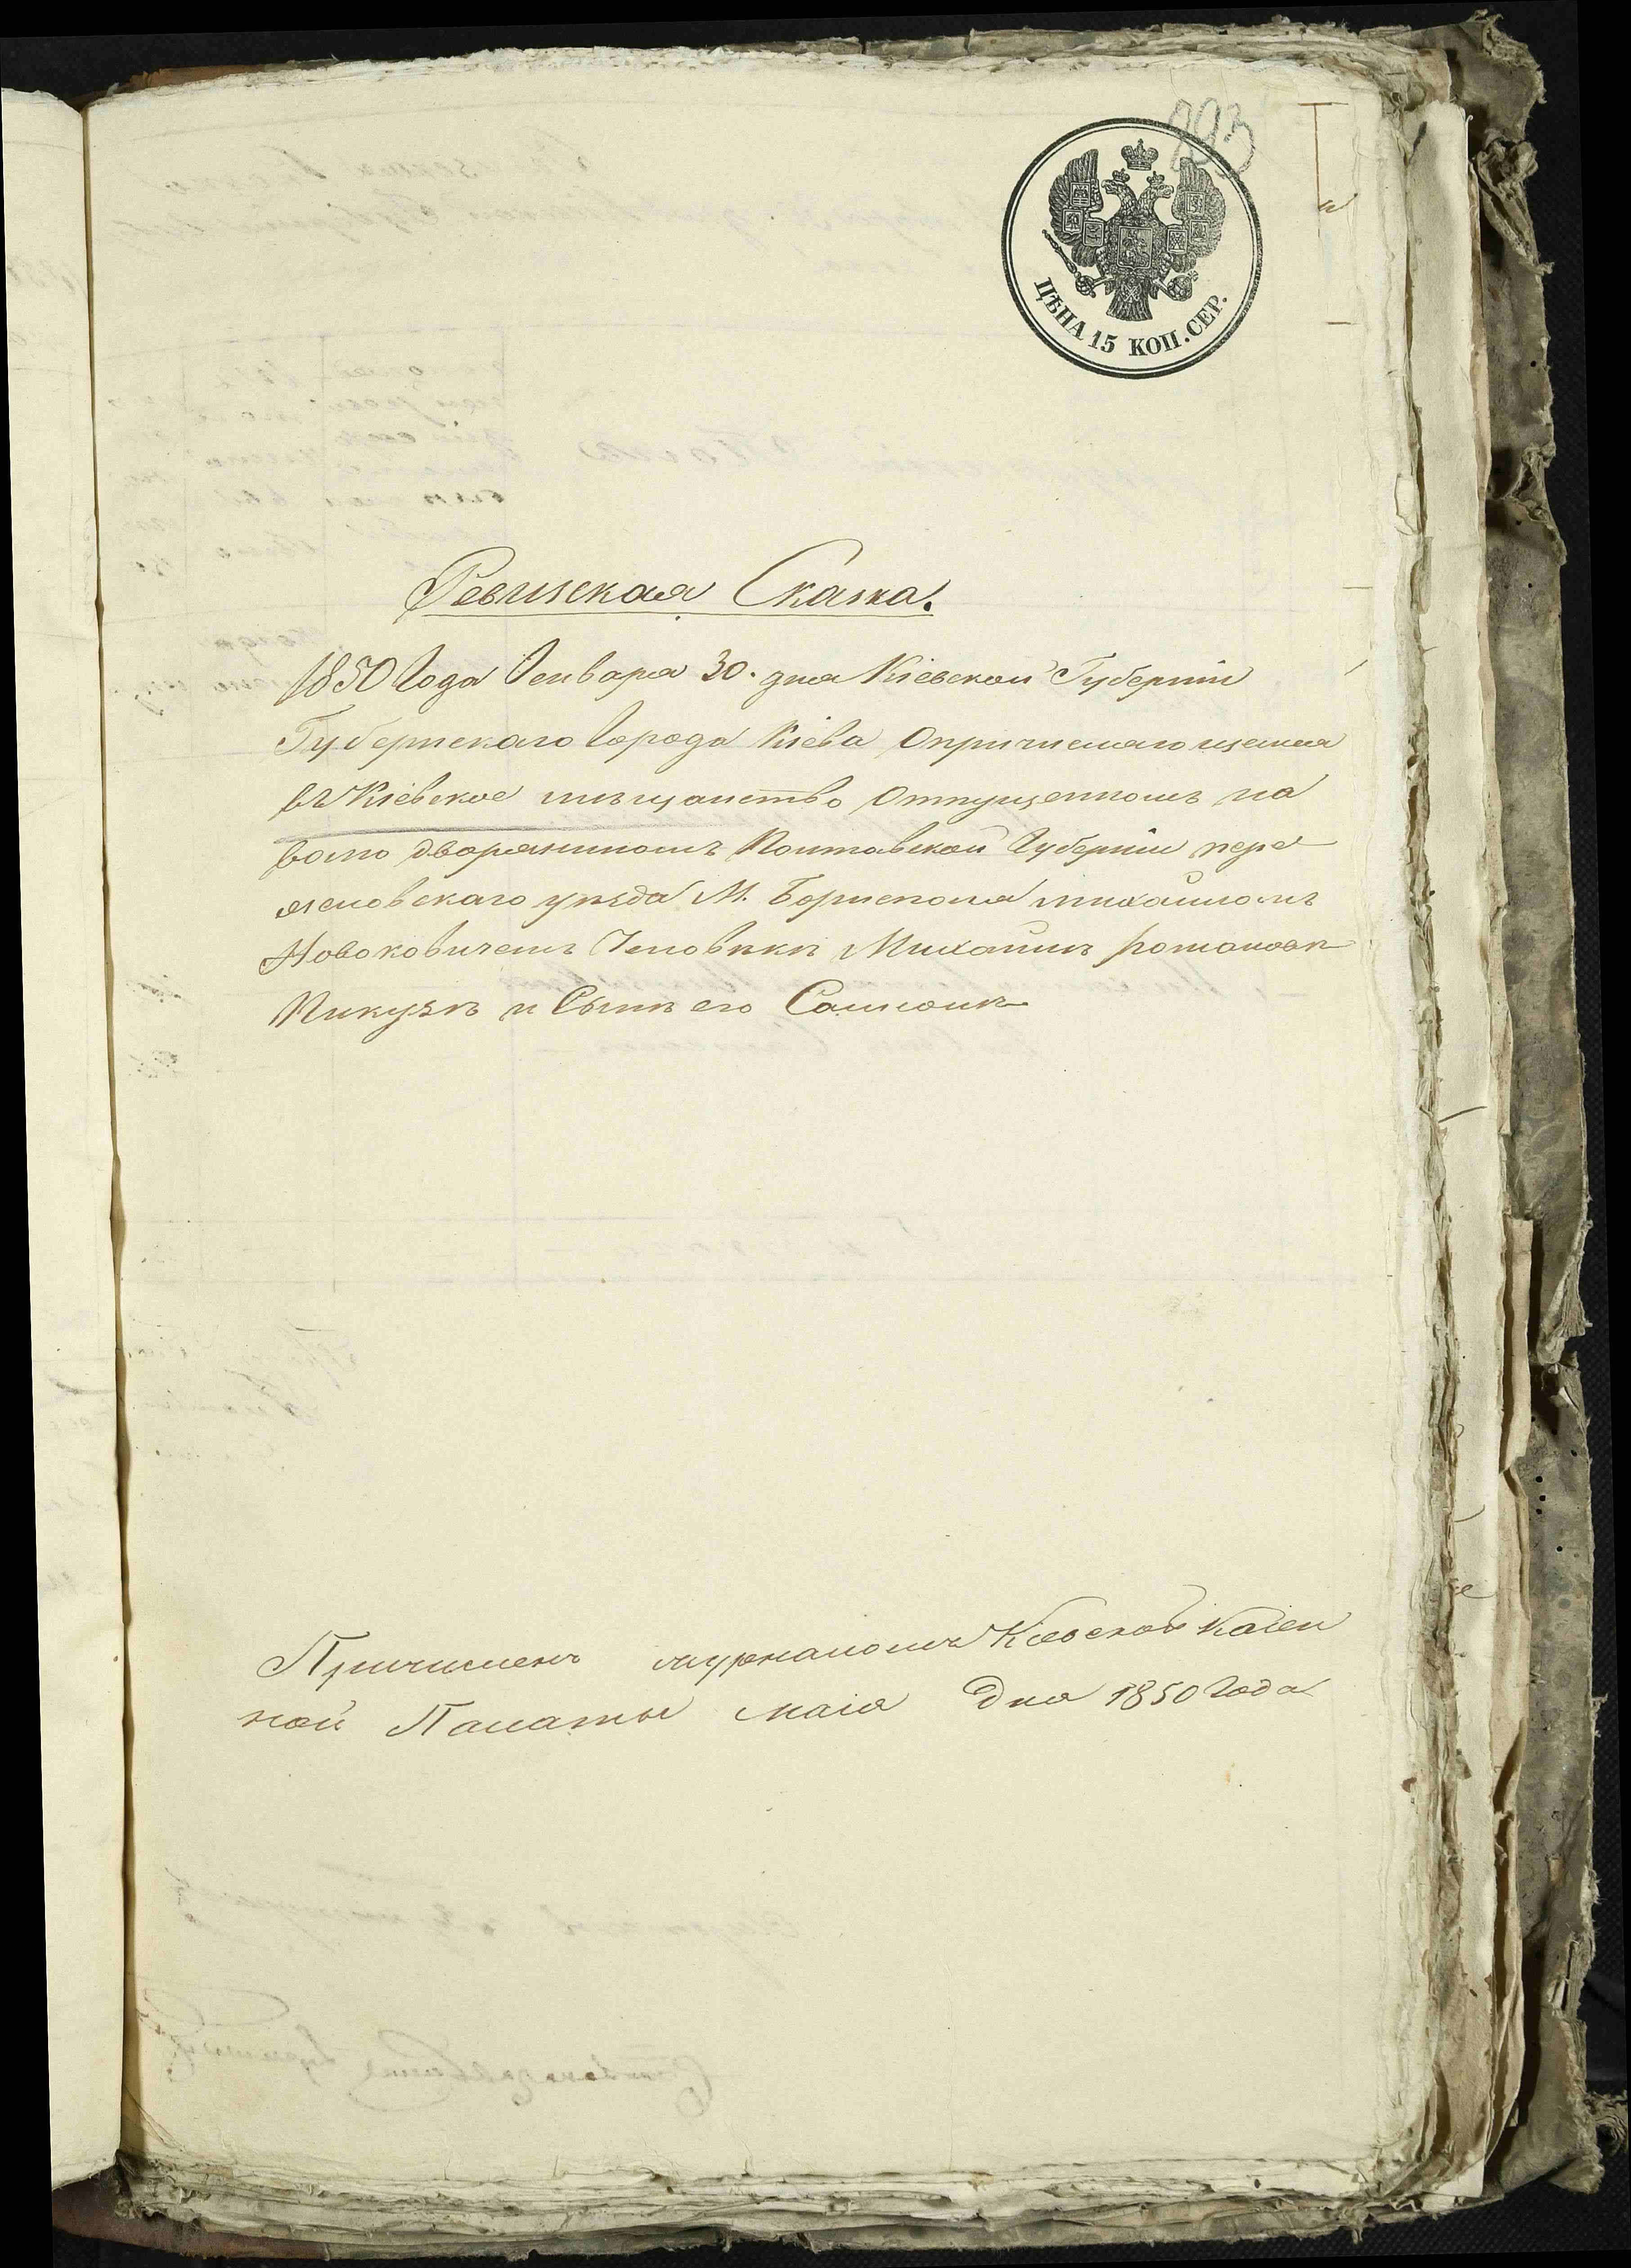 293
ЦѢНА 15 КОП. СЕР.
Ревизская Сказка.
1850 Года Генваря 30. дня Кіевской Губерніи
Губернскаго Города Кіева О причисляющемся
въ Кіевское мѣщанство Отпущенномъ на
волю дворяниномъ Полтавской Губерніи пере
яславскаго уезда М. Борисполя михайломъ
Новаковичемъ Человѣкѣ Михайлѣ романовѣ
Пикузѣ и Сынѣ его Самсонѣ
Причисленъ журналомъ Кіевской Казен
ной Палаты маія дня 1850 Года